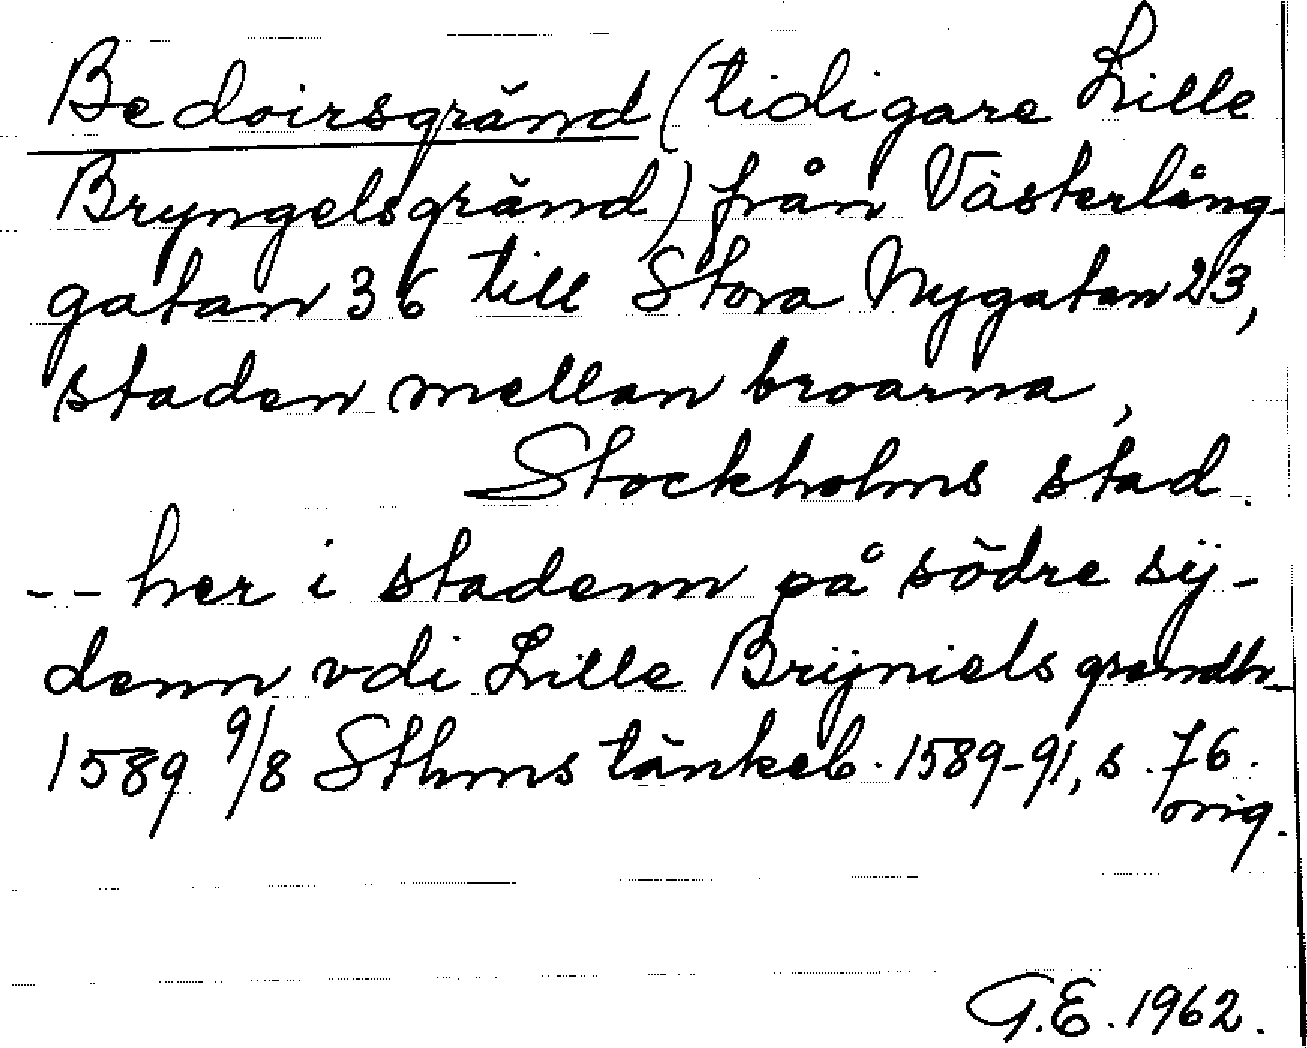 Bedoirsgränd (tidigare Lille
Bryngelsgränd) från Västerlång-
gatan 36 till Stora Nygatan 23,
staden mellan broarna,
Stockholms stad.
-- her i stadenn på södre sÿ-
denn vdi Lille Brÿniels grendh_
1589 9/8 Sthms tänkeb. 1589-91, s. 76.
orig.
G.E. 1962.